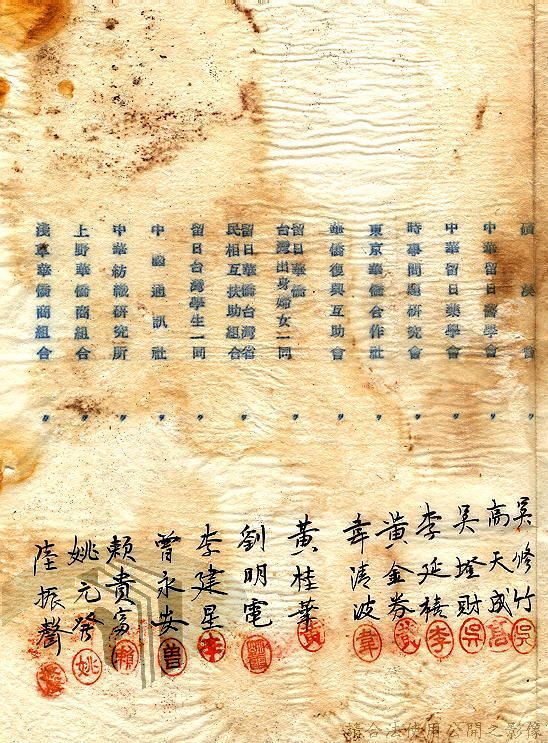 漢會
中華留日醫學會
中華留日藥學會
時事問題研究會
東京華僑合作社
華僑復興互助會
留日華僑
台灣出身婦女一同
留日華僑台灣省
民相互扶助組合
留日台灣學生一同
中國通訊社
中華紡織研究所
上野華僑商組合
淺草華僑商組合
〃 〃 〃 〃 〃 〃 〃 〃 〃 〃 〃 〃 〃
吳修竹
高天成
吳財
李延禧
黃金
韋清波
黃桂華
劉明電
李建星
曾永安
賴貴富
姚元發
陸振聲
吳
高
吳
李
韋
李
曾
賴
姚
請合法使用公開之影像